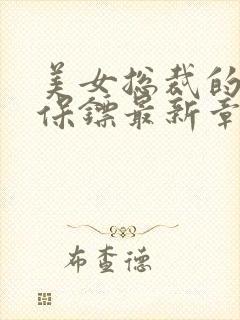 美女总裁的
保镖最新章
布查德